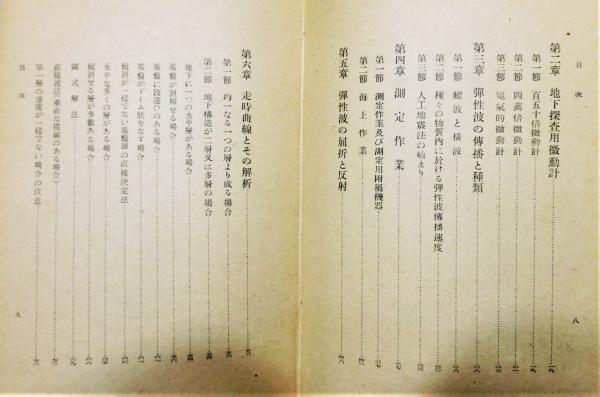 目次
八
第二章 地下探査用微動計
第一節 百五十倍微動計
第二節 四萬倍微動計
第三節 電氣的微動計
第三章 彈性波の傳播と種類
第一節 縱波と橫波
第二節 種々の物質內に於ける彈性波傳播速度
第三節 人工地震法の始まり
第四章 測定作業
第一節 測定作業及び測定用附屬機器
第二節 海上作業
第五章 彈性波の屈折と反射
第六章 走時曲線とその解析
第一節 均一なる一つの層より成る場合
第二節 地下構造が二層又は多層の場合
地下に一つの水平層がある場合
基盤が斜傾せる場合
基盤に段違ひのある場合
基盤がドーム狀をなす場合
傾斜が一樣でない基盤面の直接決定法
水平な多くの層がある場合
傾斜せる層が多數ある場合
圖式解法
直接波法(垂直な境面のある場合)
第一層の速度が一樣でない場合の注意
目次
九